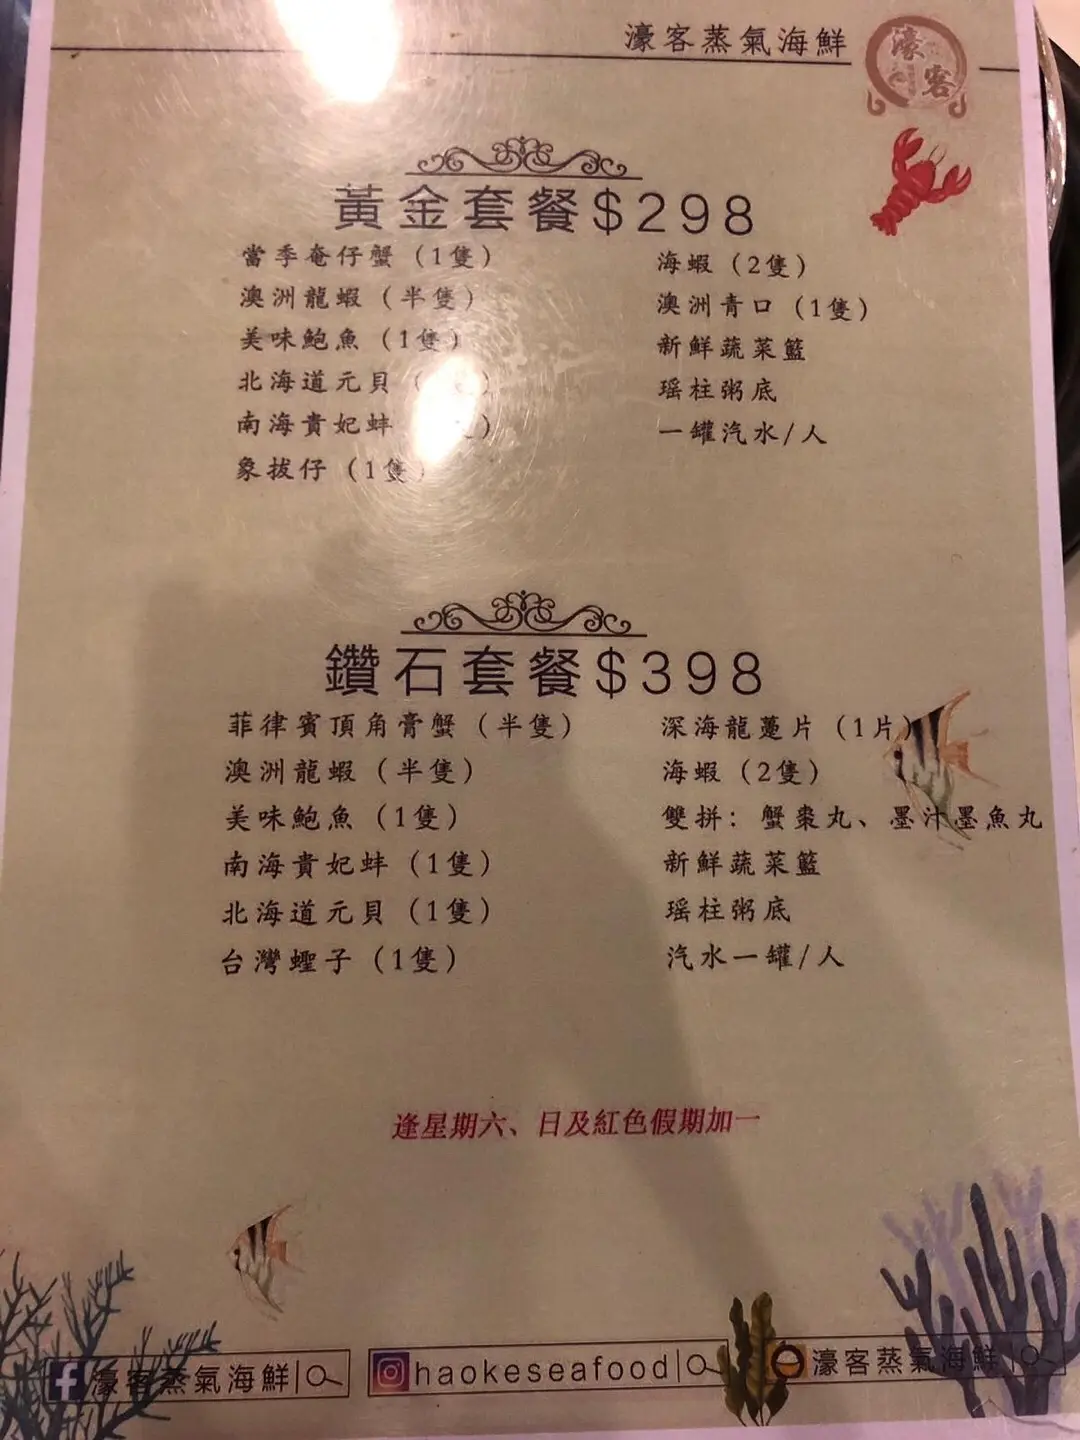 濠客蒸氣海鮮
濠客
黃金套餐$298
當季奄仔蟹（1隻）
澳洲龍蝦（半隻）
美味鮑魚（1隻）
北海道元貝
南海貴妃蚌
象拔仔（1隻）
海蝦（2隻）
澳洲青口（1隻）
新鮮蔬菜籃
瑶柱粥底
一罐汽水/人
鑽石套餐$398
菲律賓頂角膏蟹（半隻）
澳洲龍蝦（半隻）
美味鮑魚（1隻）
南海貴妃蚌（1隻）
北海道元貝（1隻）
台灣蟶子（1隻）
深海龍躉片（1片）
海蝦（2隻）
雙拼：蟹棗丸、墨汁墨魚丸
新鮮蔬菜籃
瑶柱粥底
汽水一罐/人
逢星期六、日及紅色假期加一
濠客蒸氣海鮮
haokeseafood
濠客蒸氣海鮮